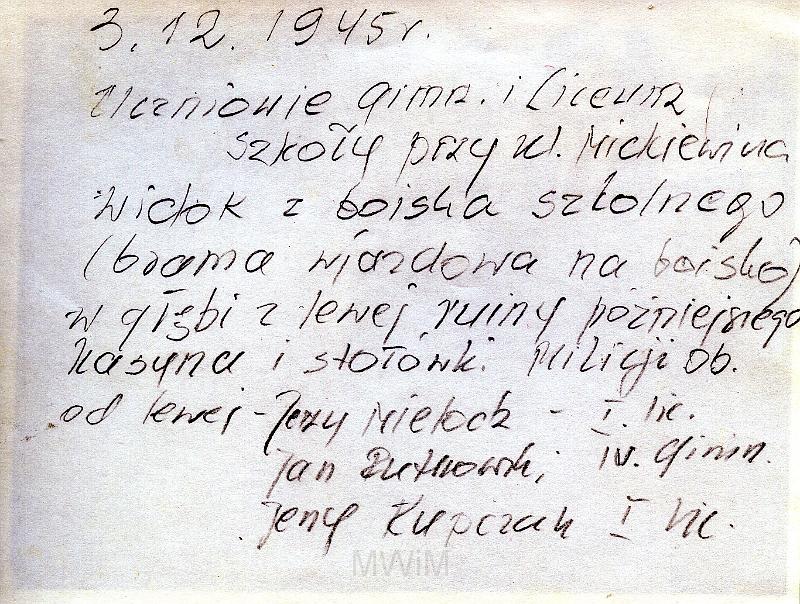 3. 12. 1945r.
Uczniowie gimn. i Liceum
Szkoły przy ul. Mickiewicza
Widok z boiska szkolnego
(brama wjazdowa na boisko)
w głębi z lewej ruiny późniejszego
Kasyna i stołówki Milicji Ob.
od lewej - Jerzy Mielock - I. lic.
Jan Rutkowski IV. Gimn.
Jerzy Kupczak I lic.
MWiM